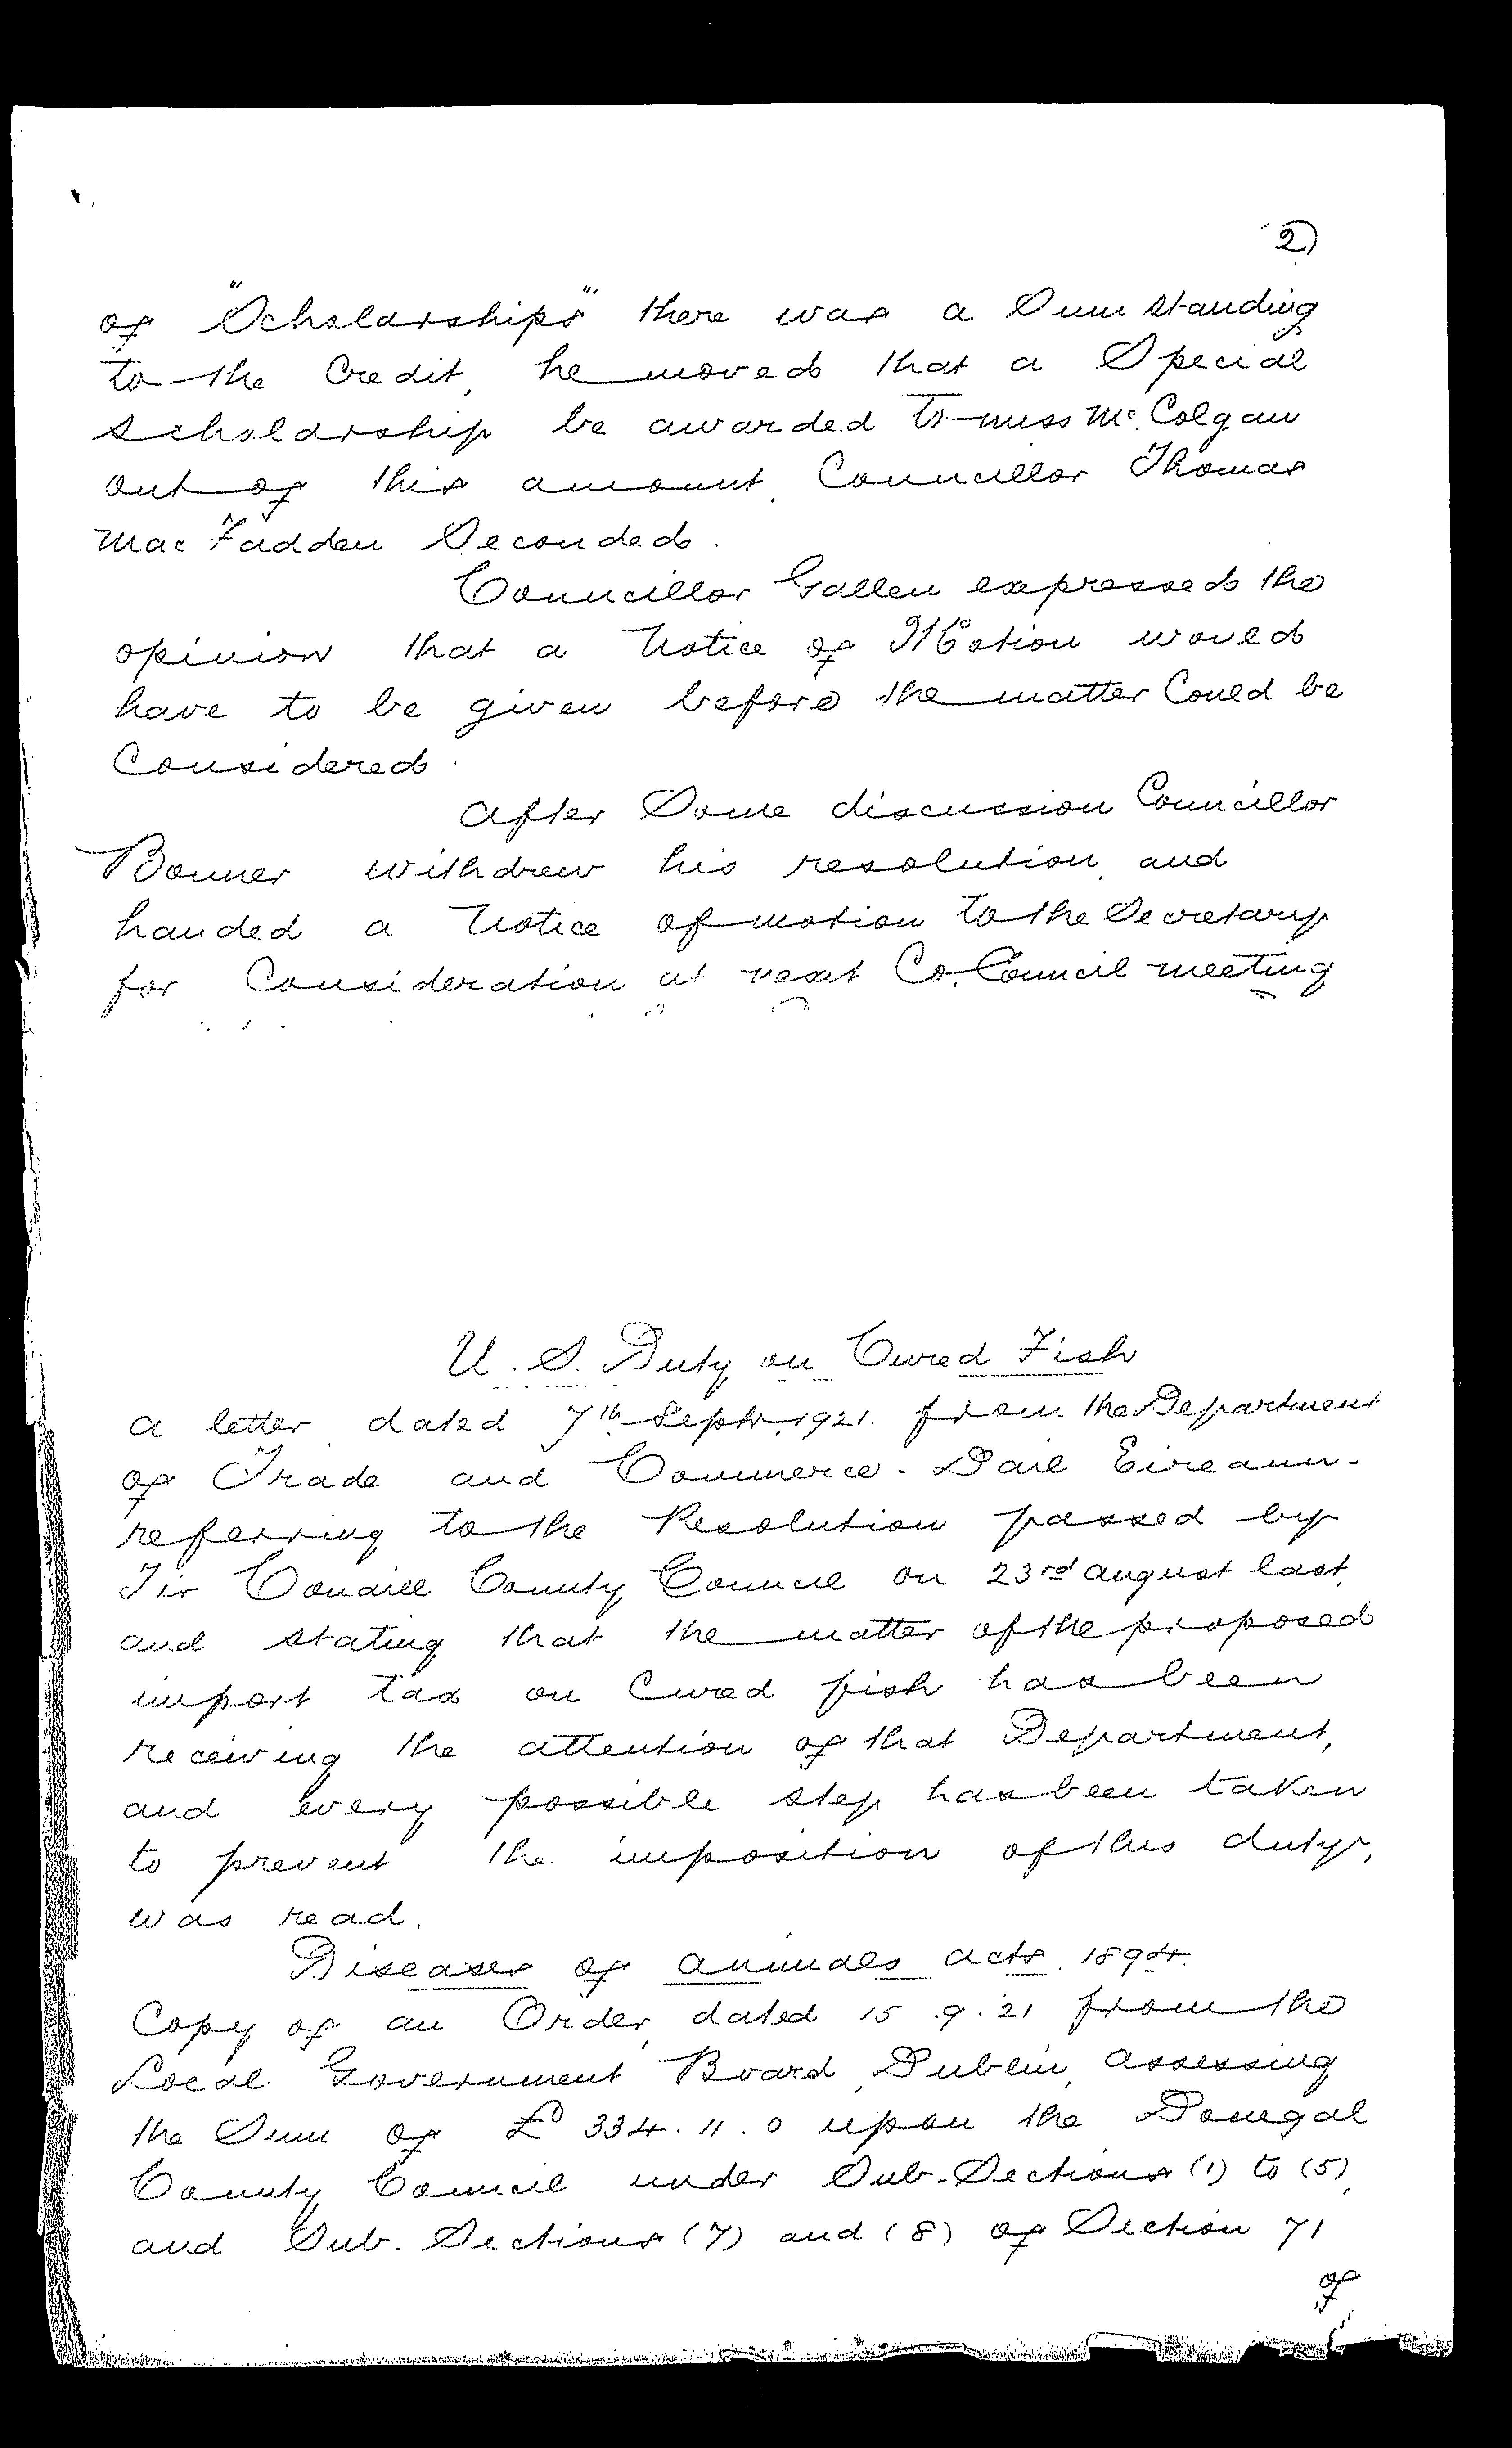 2)
of "Scholarships" there was a Sum standing
to the Credit, he moved that a Special
scholarship be awarded to Miss McColgan
out of this amount. Councillor Thomas
MacFadden Seconded.
Councillor Gallen expressed the
opinion that a Notice of Motion would
have to be given before the matter Could be
Considered.
After Some discussion Councillor
Bonner withdrew his resolution, and
handed a Notice of motion to the Secretary
for Consideration at next Co. Council meeting
U. S. Duty on Cured Fish
A letter dated 7th Septr. 1921. from the Department
of Trade and Commerce. Dail Eireann.
referring to the Resolution passed by
Tir Conaill County Council on 23rd August last,
and stating that the matter of the proposed
import tax on Cured fish has been
receiving the attention of that Department,
and every possible step has been taken
to prevent the imposition of this duty,
was read.
Diseases of Animals Acts 1894.
Copy of an Order, dated 15.9.21 from the
Local Government Board, Dublin, assessing
the Sum of £334.11.0 upon the Donegal
County Council under Sub-Sections (1) to (5),
and Sub. Sections (7) and (8) of Section 71
of